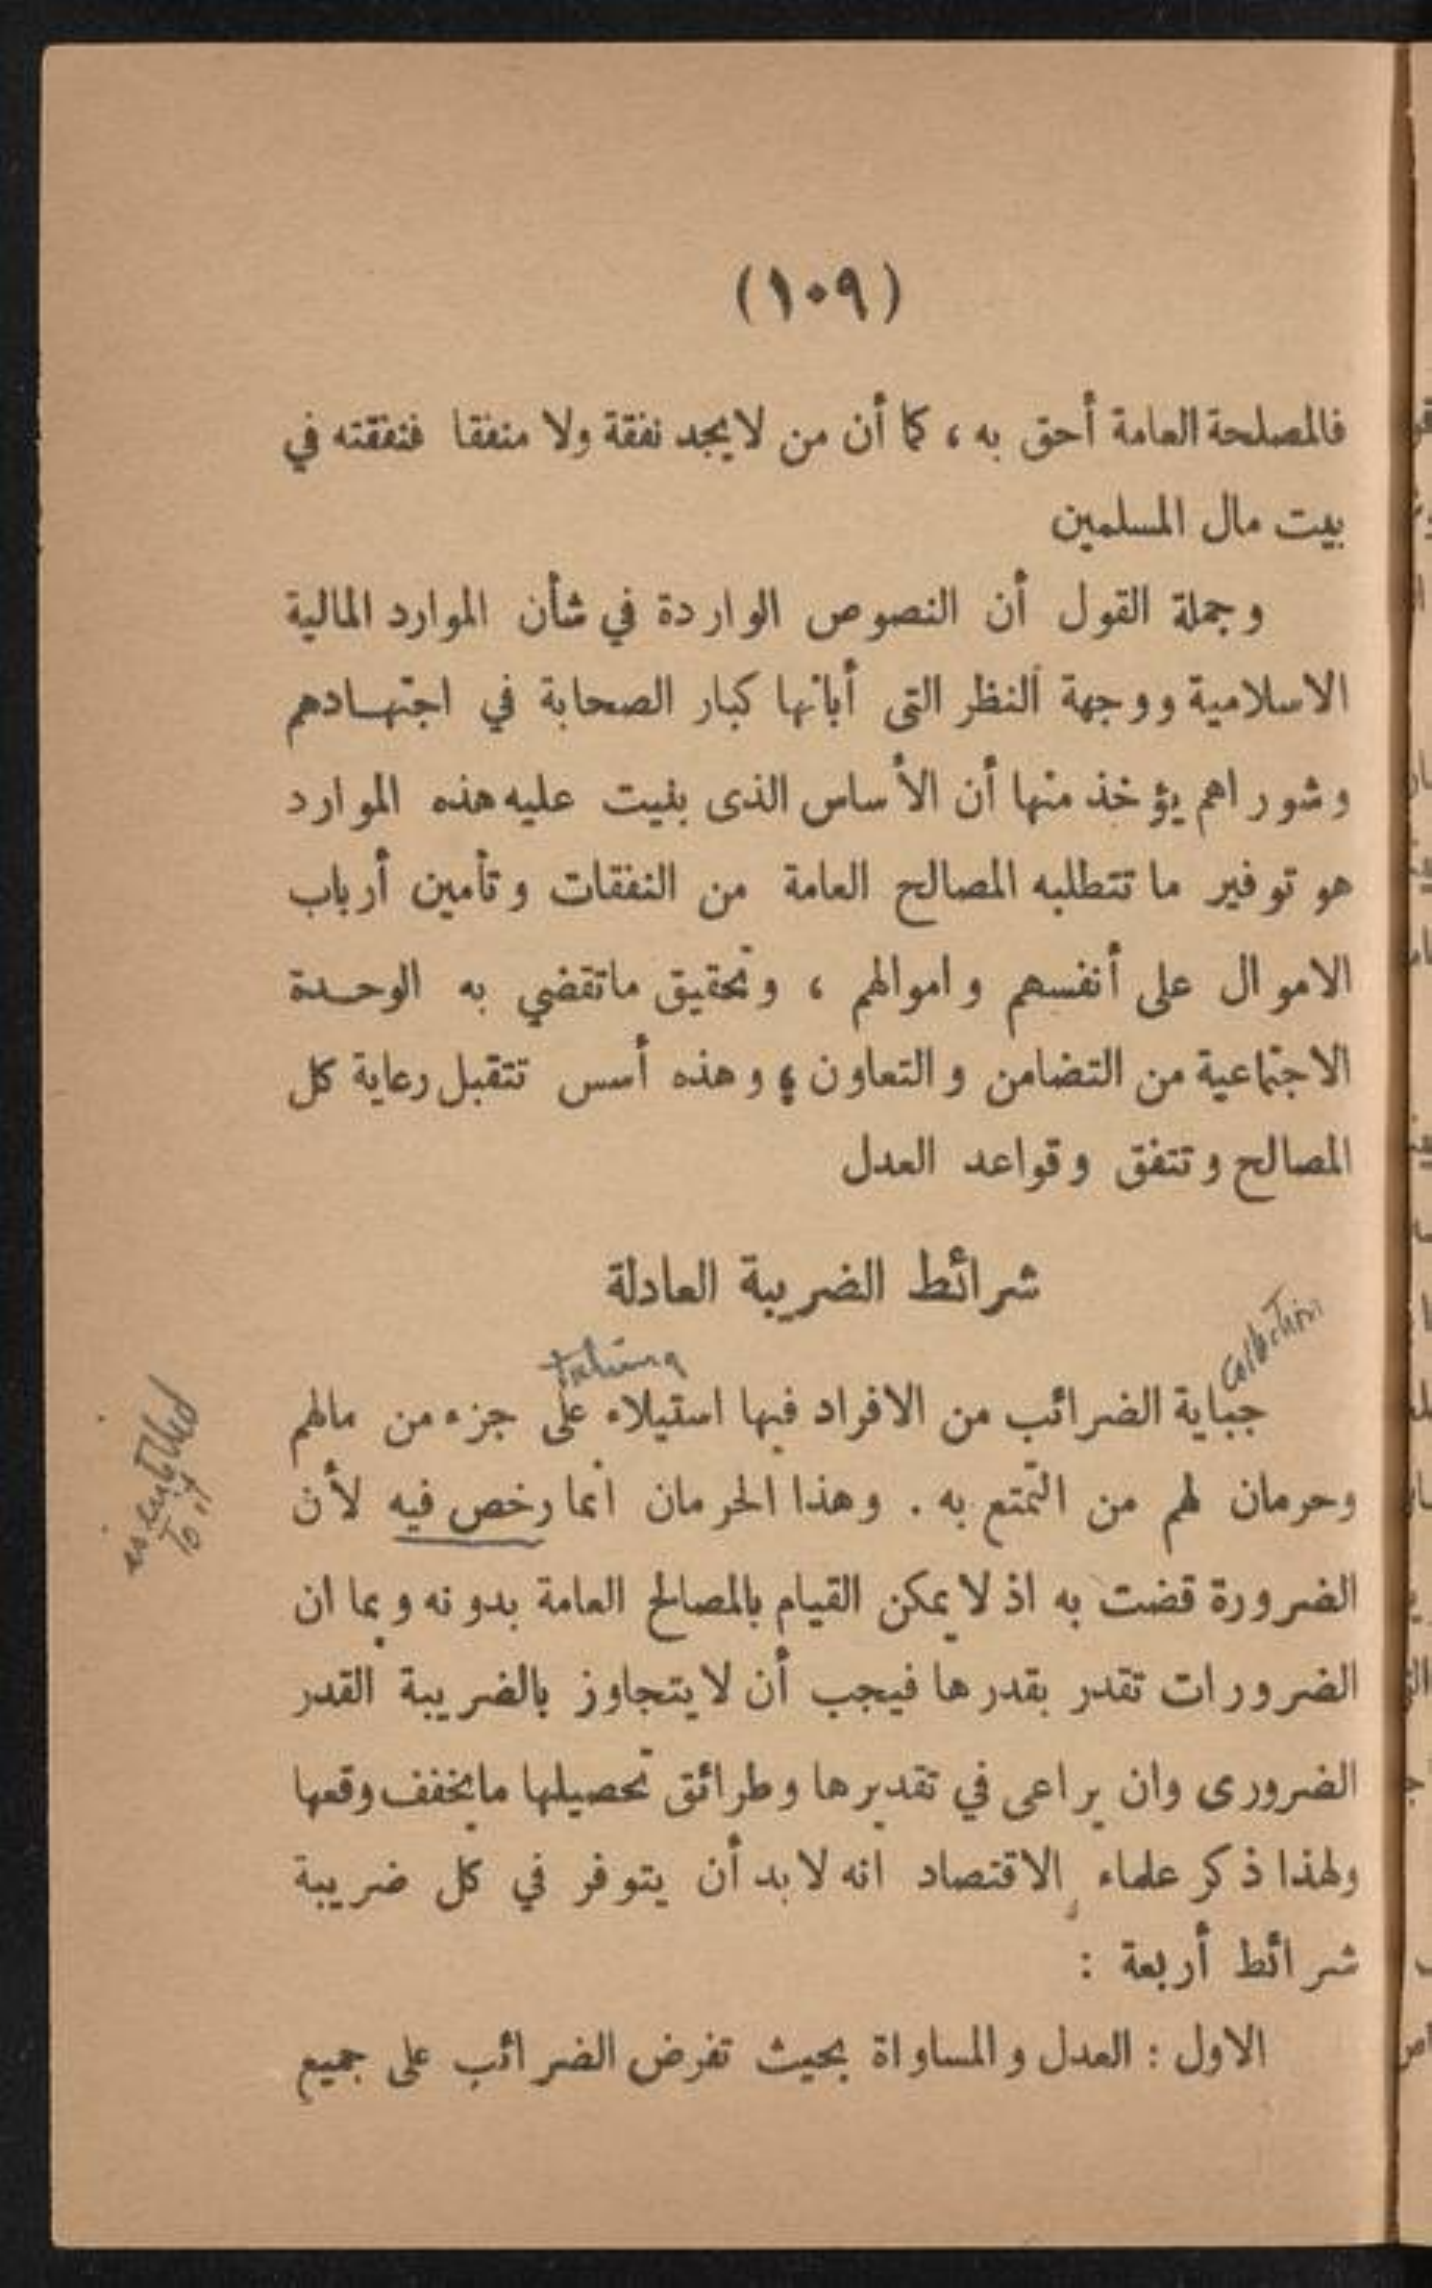 (١٠٩)
فالمصلحة العامة أحق به ، كما أن من لا يجد نفقة ولا منفقا فنفقته في
بيت مال المسلمين
وجملة القول أن النصوص الواردة في شأن الموارد المالية
الاسلامية ووجهة النظر التى أبانها كبار الصحابة في اجتهادهم
وشوراهم يؤخذ منها أن الأساس الذى بنيت عليه هذه الموارد
هو توفير ما تتطلبه المصالح العامة من النفقات وتأمين أرباب
الاموال على أنفسهم واموالهم ، وتحقيق ماتقضي به الوحدة
الاجتماعية من التضامن والتعاون ، وهذه أسس تتقبل رعاية كل
المصالح وتتفق وقواعد العدل
شرائط الضريبة العادلة
Collection
taking
جباية الضرائب من الافراد فيها استيلاء على جزء من مالهم
وحرمان لهم من التمتع به . وهذا الحرمان انما رخص فيه لأن
is entitled
to it
الضرورة قضت به اذ لا يمكن القيام بالمصالح العامة بدونه وبما ان
الضرورات تقدر بقدرها فيجب أن لا يتجاوز بالضريبة القدر
الضرورى وان يراعى في تقديرها وطرائق تحصيلها مايخفف وقعها
ولهذا ذكر علماء الاقتصاد انه لا بد أن يتوفر في كل ضريبة
شرائط أربعة :
الاول : العدل والمساواة بحيث تفرض الضرائب على جميع